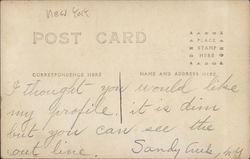 New York
POST CARD
PLACE
STAMP
HERE
CORRESPONDENCE HERE
NAME AND ADDRESS HERE
I thought you would like
my profile. it is dim
but you can see the
out line. Sandy Creek, NY